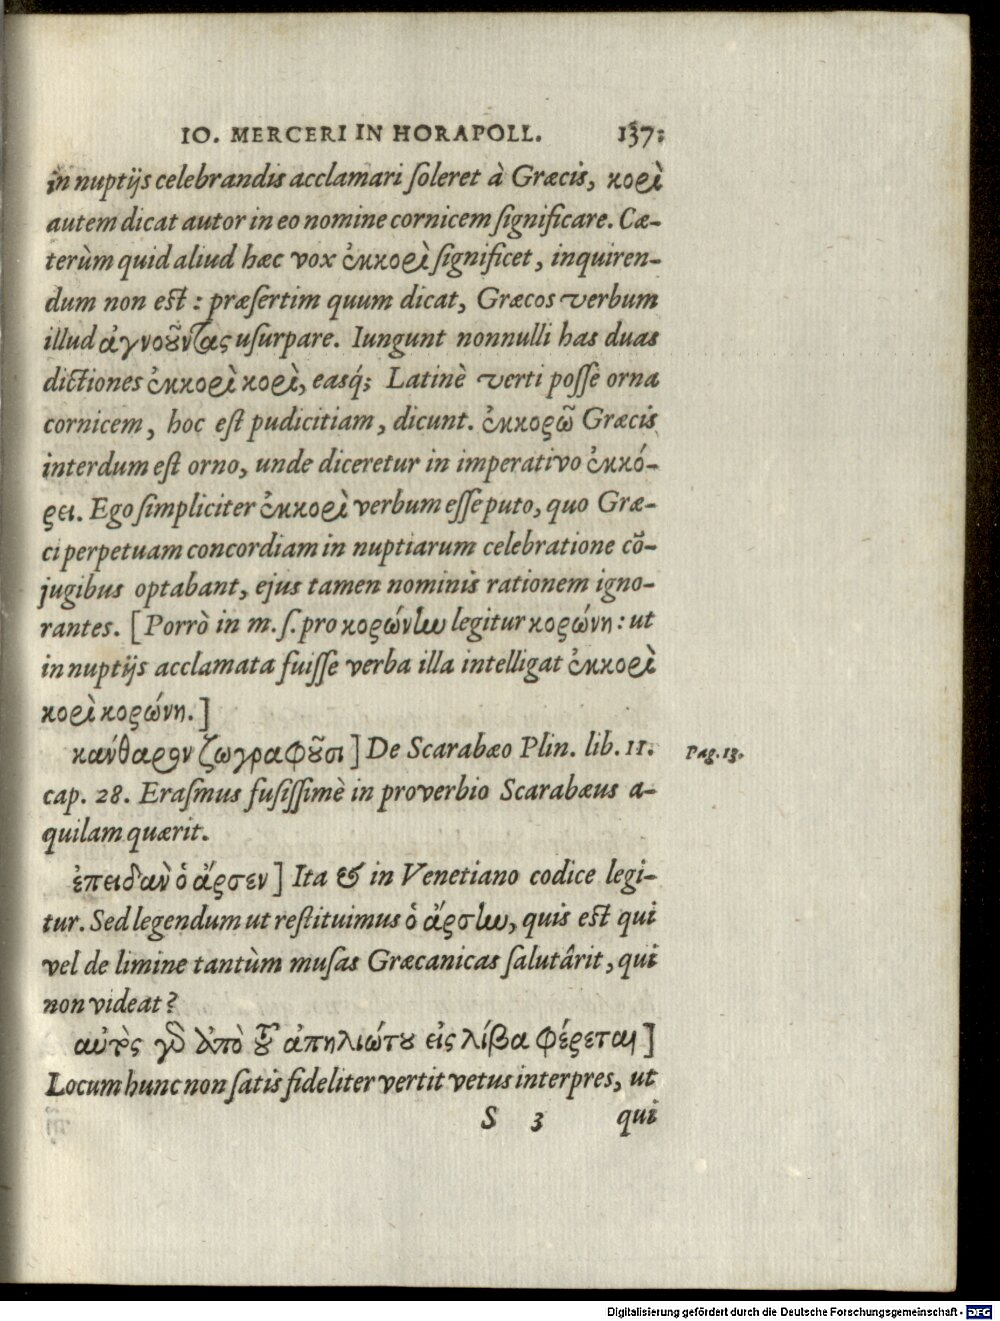 IO. MERCERI IN HORAPOLL. 137:
in nuptijs celebrandis acclamari ſoleret à Græcis, κορὶ
autem dicat autor in eo nomine cornicem ſignificare. Cæ-
terùm quid aliud hæc vox ἐκκορὶ ſignificet, inquiren-
dum non eſt: præſertim quum dicat, Græcos verbum
illud ἀγνοοῦντας uſurpare. Iungunt nonnulli has duas
dictiones ἐκκορὶ κορὶ, easq́; Latinè verti poſſe orna
cornicem, hoc eſt pudicitiam, dicunt. ἐκκορῶ Græcis
interdum eſt orno, unde diceretur in imperativo ἐκκό-
ρει. Ego ſimpliciter ἐκκορὶ verbum eſſe puto, quo Græ-
ci perpetuam concordiam in nuptiarum celebratione cõ-
jugibus optabant, ejus tamen nominis rationem igno-
rantes. [Porrò in m. ſ. pro κορώνην legitur κορώνη: ut
in nuptijs acclamata fuiſſe verba illa intelligat ἐκκορὶ
κορὶ κορώνη.]
κάνθαρον ζωγραφοῦσι] De Scarabæo Plin. lib. 11.
Pag. 13.
cap. 28. Eraſmus fuſiſſimè in proverbio Scarabæus a-
quilam quærit.
ἐπειδὰν ὁ ἄρσεν] Ita & in Venetiano codice legi-
tur. Sed legendum ut reſtituimus ὁ ἄρσην, quis eſt qui
vel de limine tantùm muſas Græcanicas ſalutârit, qui
non videat?
αὐτὸς γὰρ ἀπὸ τοῦ ἀπηλιώτου εἰς λίβα φέρεται]
Locum hunc non ſatis fideliter vertit vetus interpres, ut
S 3 qui
Digitalisierung gefördert durch die Deutsche Forschungsgemeinschaft - DFG